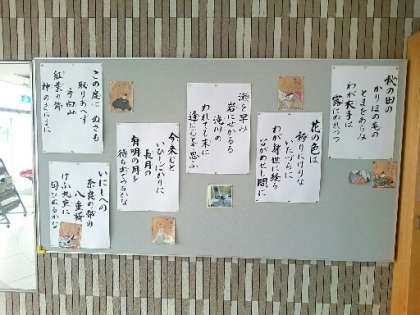 秋の田の
かりほの庵の
とまをあらみ
わが衣手は
露にぬれつつ
花の色は
移りにけりな
いたづらに
わが身世に経る
ながめせし間に
瀬を早み
岩にせかるる
滝川の
われても末に
逢はんとぞ思ふ
今来むと
いひしばかりに
長月の
有明の月を
待ち出でつるかな
この度は ぬさも
取りあへず
手向山
紅葉の錦
神のまにまに
いにしへの
奈良の都の
八重桜
けふ九重に
匂ひぬるかな